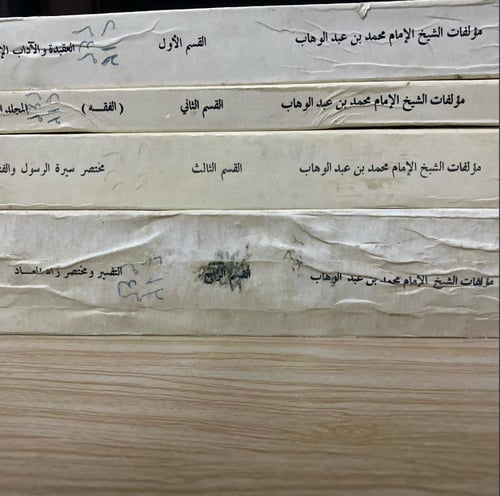 مؤلفات الشيخ الإمام محمد بن عبد الوهاب القسم الأول العقيدة والآداب
مؤلفات الشيخ الإمام محمد بن عبد الوهاب القسم الثاني ( الفقه ) المجلد
مؤلفات الشيخ الإمام محمد بن عبد الوهاب القسم الثالث مختصر سيرة الرسول
مؤلفات الشيخ الإمام محمد بن عبد الوهاب التفسير ومختصر زاد المعاد